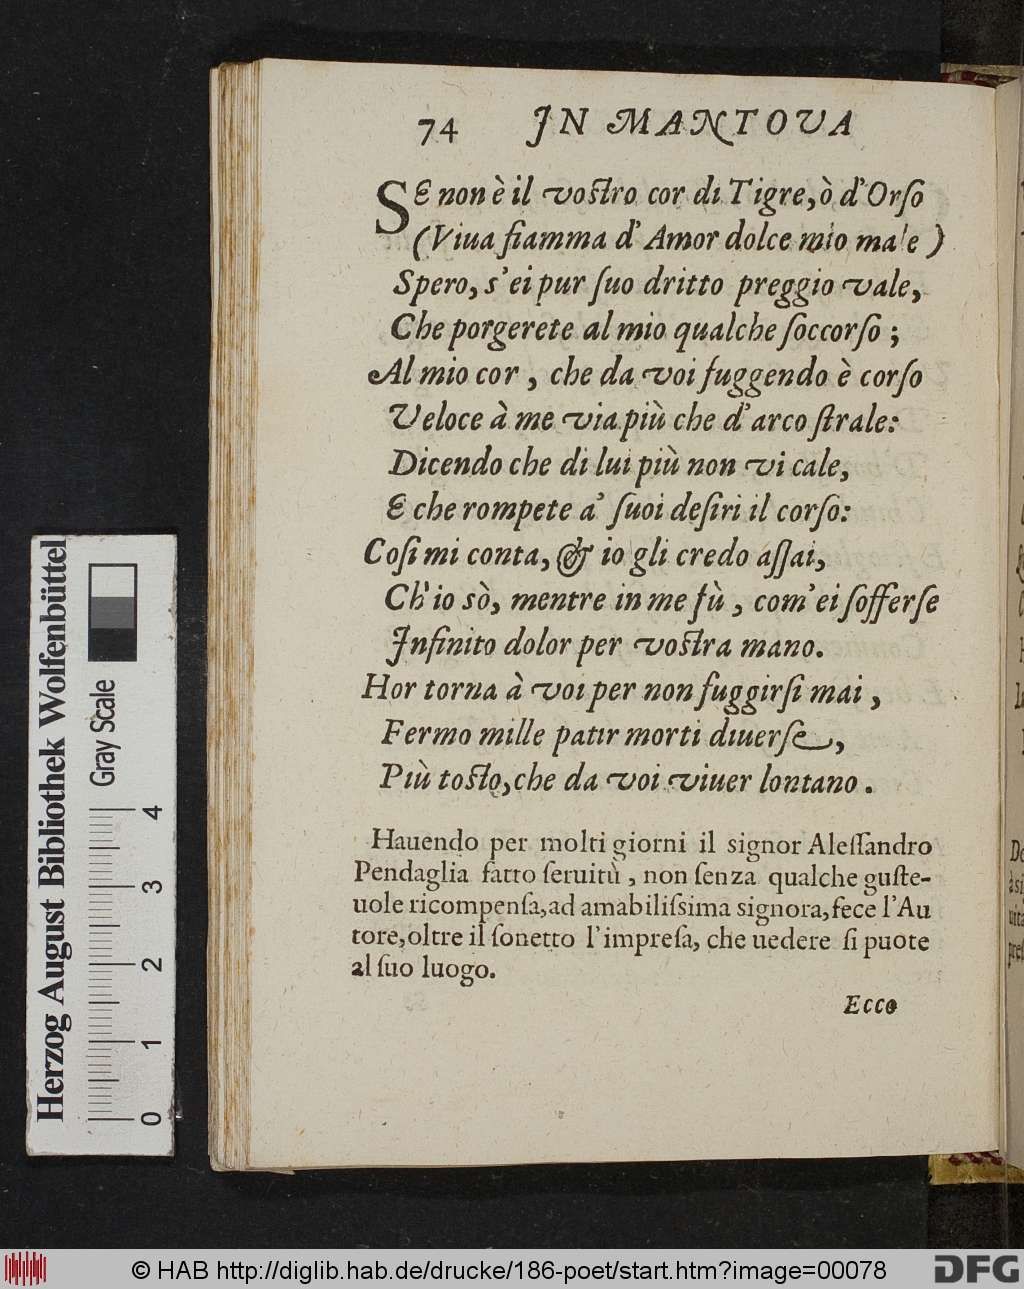 74 IN MANTOVA
SE non è il voſtro cor di Tigre, ò d'Orſo
(Viua fiamma d'Amor dolce mio male)
Spero, s'ei pur ſuo dritto preggio vale,
Che porgerete al mio qualche ſoccorſo;
Al mio cor, che da voi fuggendo è corſo
Veloce à me via più che d'arco ſtrale:
Dicendo che di lui più non vi cale,
E che rompete a' ſuoi deſiri il corſo:
Coſi mi conta, & io gli credo aſſai,
Ch'io sò, mentre in me fù, com'ei ſofferſe
Infinito dolor per voſtra mano.
Hor torna à voi per non fuggirſi mai,
Fermo mille patir morti diuerſe,
Più toſto, che da voi viuer lontano.
Hauendo per molti giorni il signor Aleſſandro
Pendaglia fatto ſeruitù, non ſenza qualche guſte-
uole ricompenſa, ad amabiliſsima signora, fece l'Au
tore, oltre il ſonetto l'impreſa, che uedere ſi puote
al ſuo luogo.
Ecco
Herzog August Bibliothek Wolfenbüttel
Gray Scale
0 1 2 3 4
© HAB http://diglib.hab.de/drucke/186-poet/start.htm?image=00078
DFG